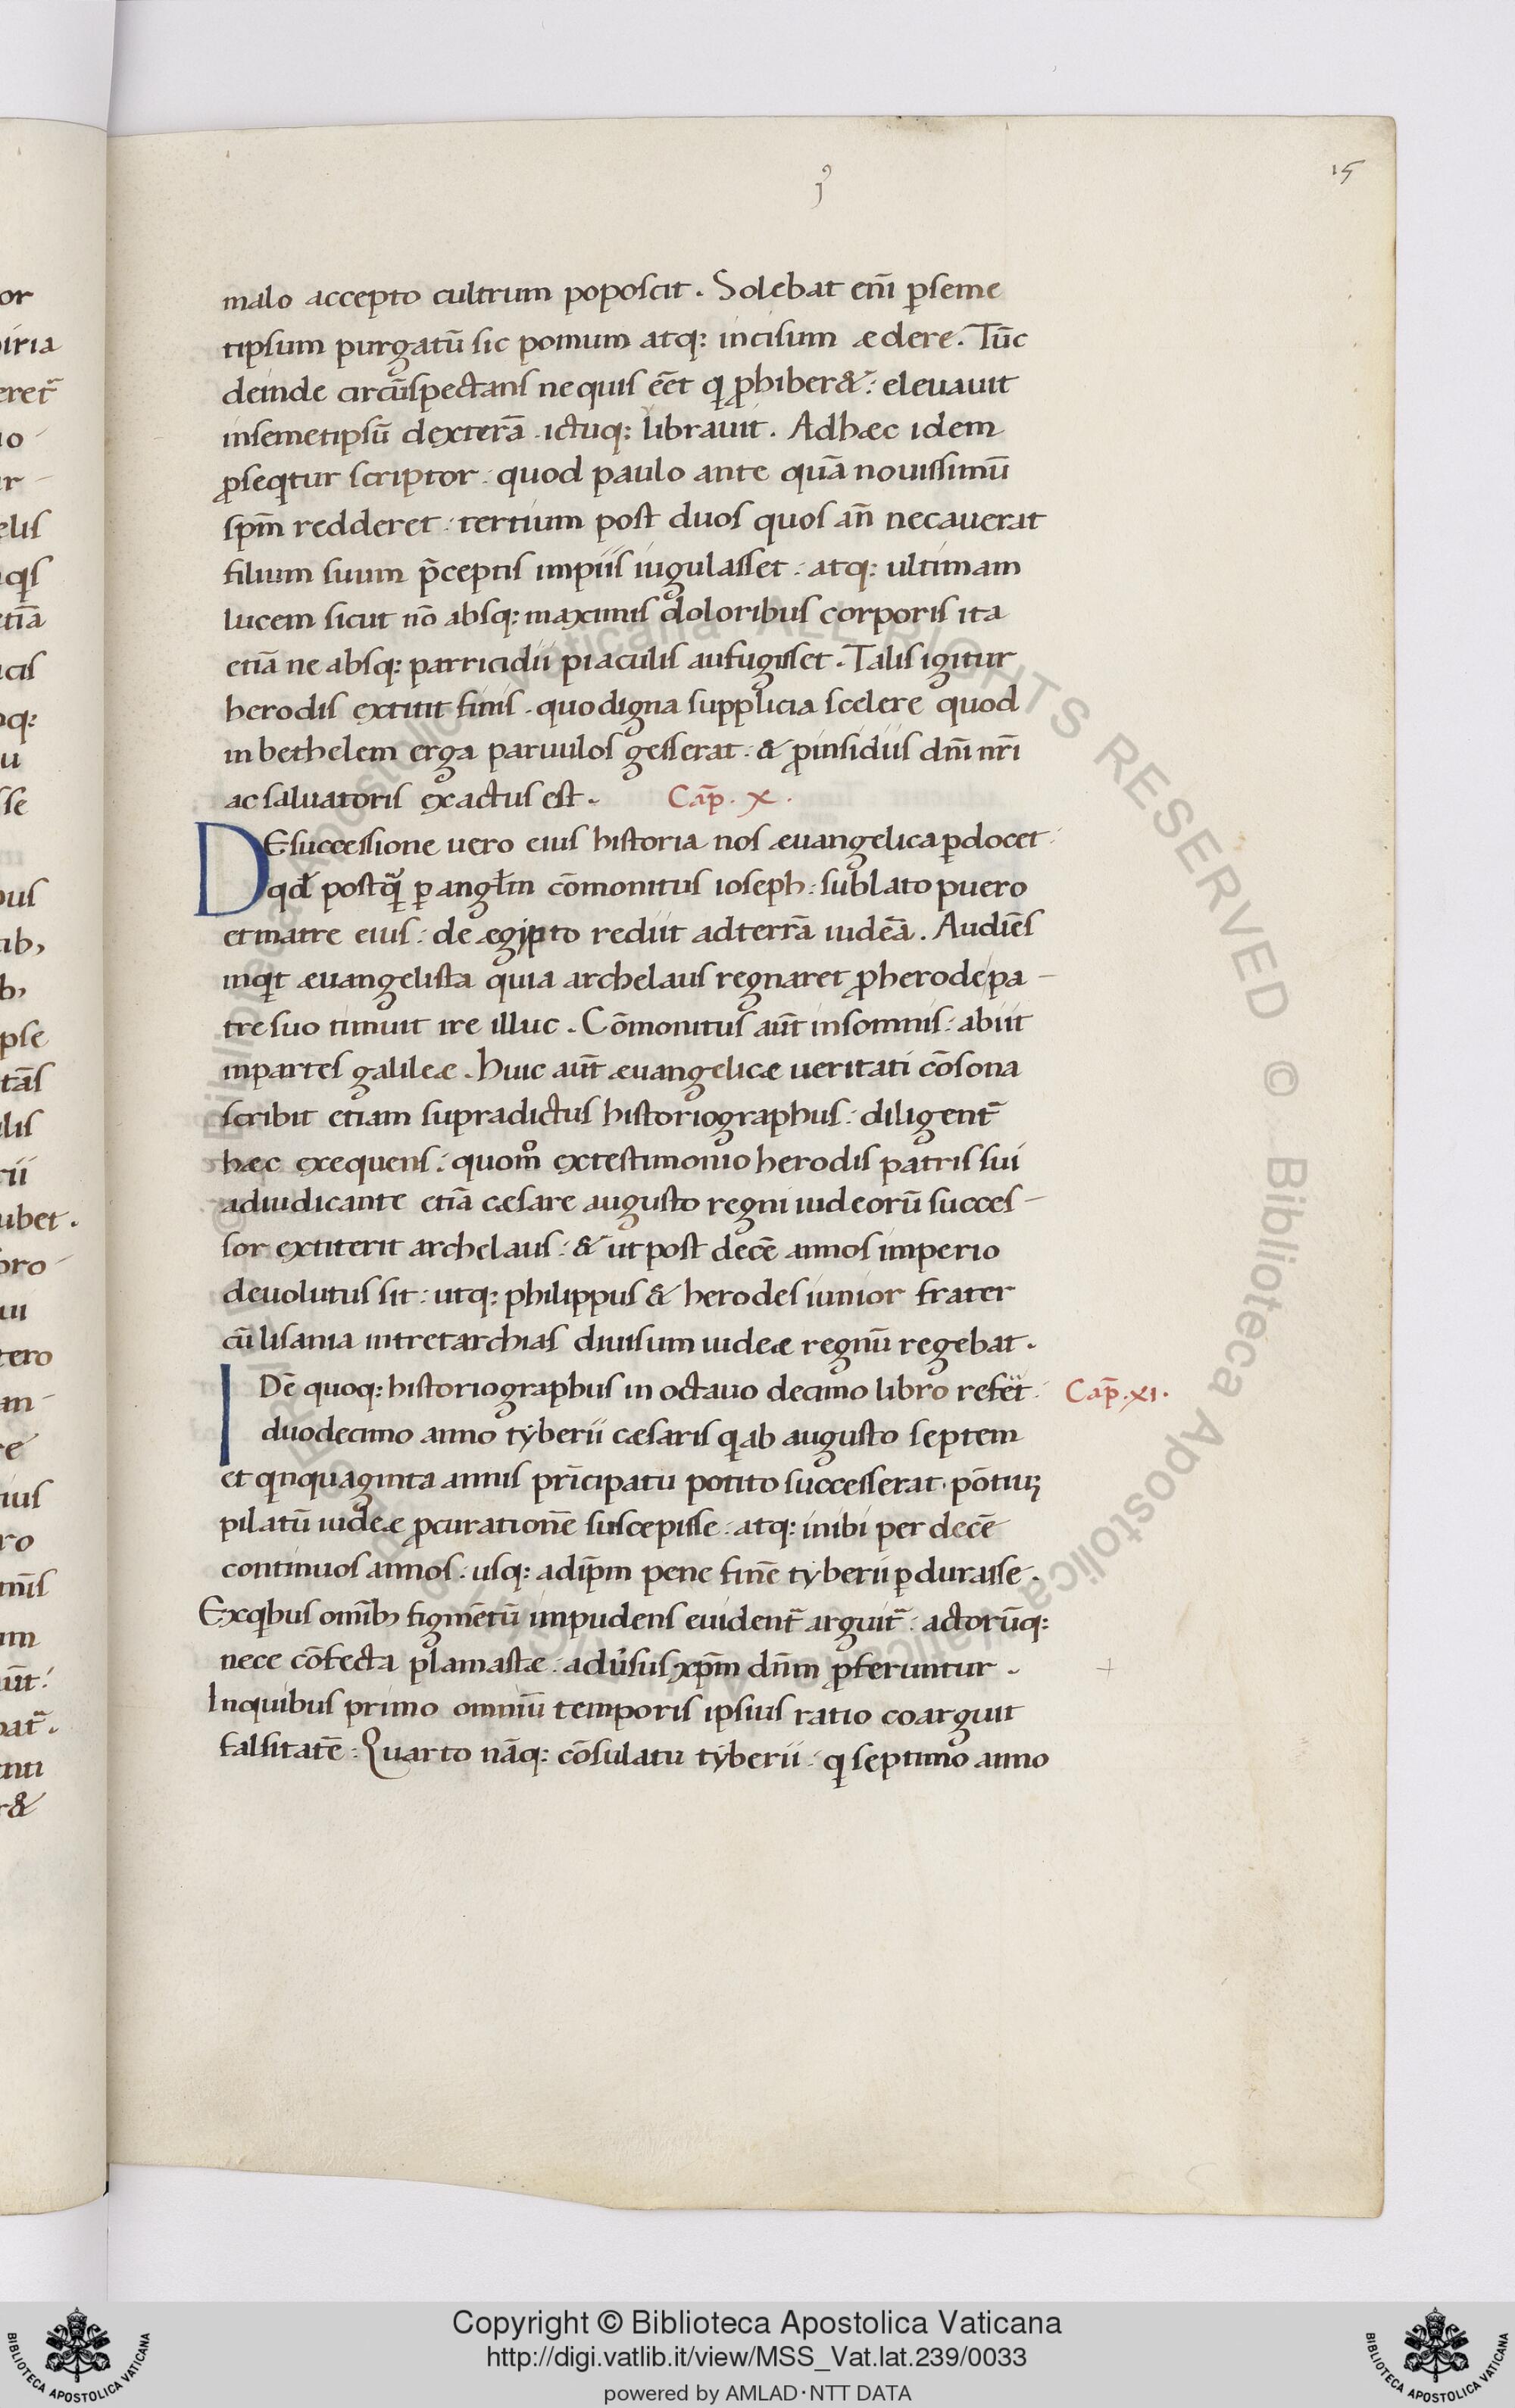 j⁹
15
malo accepto cultrum poposcit. Solebat eni̅ p̲seme
tipsum purgatu̅ sic pomum atq: incisum ædere. Tu̅c
deinde circu̅spectans ne quis ee̅t q̲ p̲hiber&: eleuauit
insemetipsu̅ dextera̅. ictuq: librauit. Adhæc idem
p̲seqtur scriptor. quod paulo ante qua̅ nouissimu̅
spm̅ redderet. tertium post duos quos an̅ necauerat
filium suum p̅ceptis impiis iugulasset. atq: ultimam
lucem sicut no̅ absq: maximis doloribus corporis ita
etia̅ ne absq: parricidii piaculis aufugisset. Talis igitur
herodis extitit finis. quo digna supplicia scelere quod
in bethelem erga paruulos gesserat. & p̲insidiis dn̅i nr̅i
ac saluatoris exactus est. Ca̅p. x.
DEsuccessione uero eius historia nos æuangelica p̲docet
qd̅ postq̅ p̲ angl̅m co̅monitus ioseph: sublato puero
et matre eius: de ægipto rediit adterra̅ iudea̅. Audie̅s
inqt æuangelista quia archelaus regnaret p̲herode pa-
tre suo timuit ire illuc. Co̅monitus aut̅ insomnis: abiit
inpartes galileæ. huic aut̅ æuangelicæ ueritati co̅sona
scribit etiam supradictus historiographus: diligent̅
hæc exequens: quom̊ extestimonio herodis patris sui
adiudicante etia̅ cæsare augusto regni iudeoru̅ succes-
sor extiterit archelaus: & ut post dece̅ annos imperio
deuolutus sit: utq: philippus & herodes iunior frater
cu̅ lisania intretarchias diuisum iudeæ regnu̅ regebat.
IDe̅ quoq: historiographus in octauo decimo libro refe̅t. Ca̅p. xi.
duodecimo anno tyberii cæsaris q̲ab augusto septem
et qnquaginta annis pri̅cipatu potito successerat. po̅tiuʒ
pilatu̅ iudeæ p̲curatione̅ suscepisse. atq: inibi per dece̅
continuos annos. usq: adip̅m pene fine̅ tyberii p̲durasse.
Exqbus omi̅bʒ figme̅tu̅ impudens euident̅ arguit̅. actoru̅q:
nece co̅fecta plamastæ. aduersus xp̅m dn̅m p̲feruntur.
Inquibus primo omniu̅ temporis ipsius ratio coarguit
falsitate̅: Quarto na̅q: co̅sulatu tyberii. q̲ septimo anno
Copyright © Biblioteca Apostolica Vaticana
http://digi.vatlib.it/view/MSS_Vat.lat.239/0033
powered by AMLAD·NTT DATA